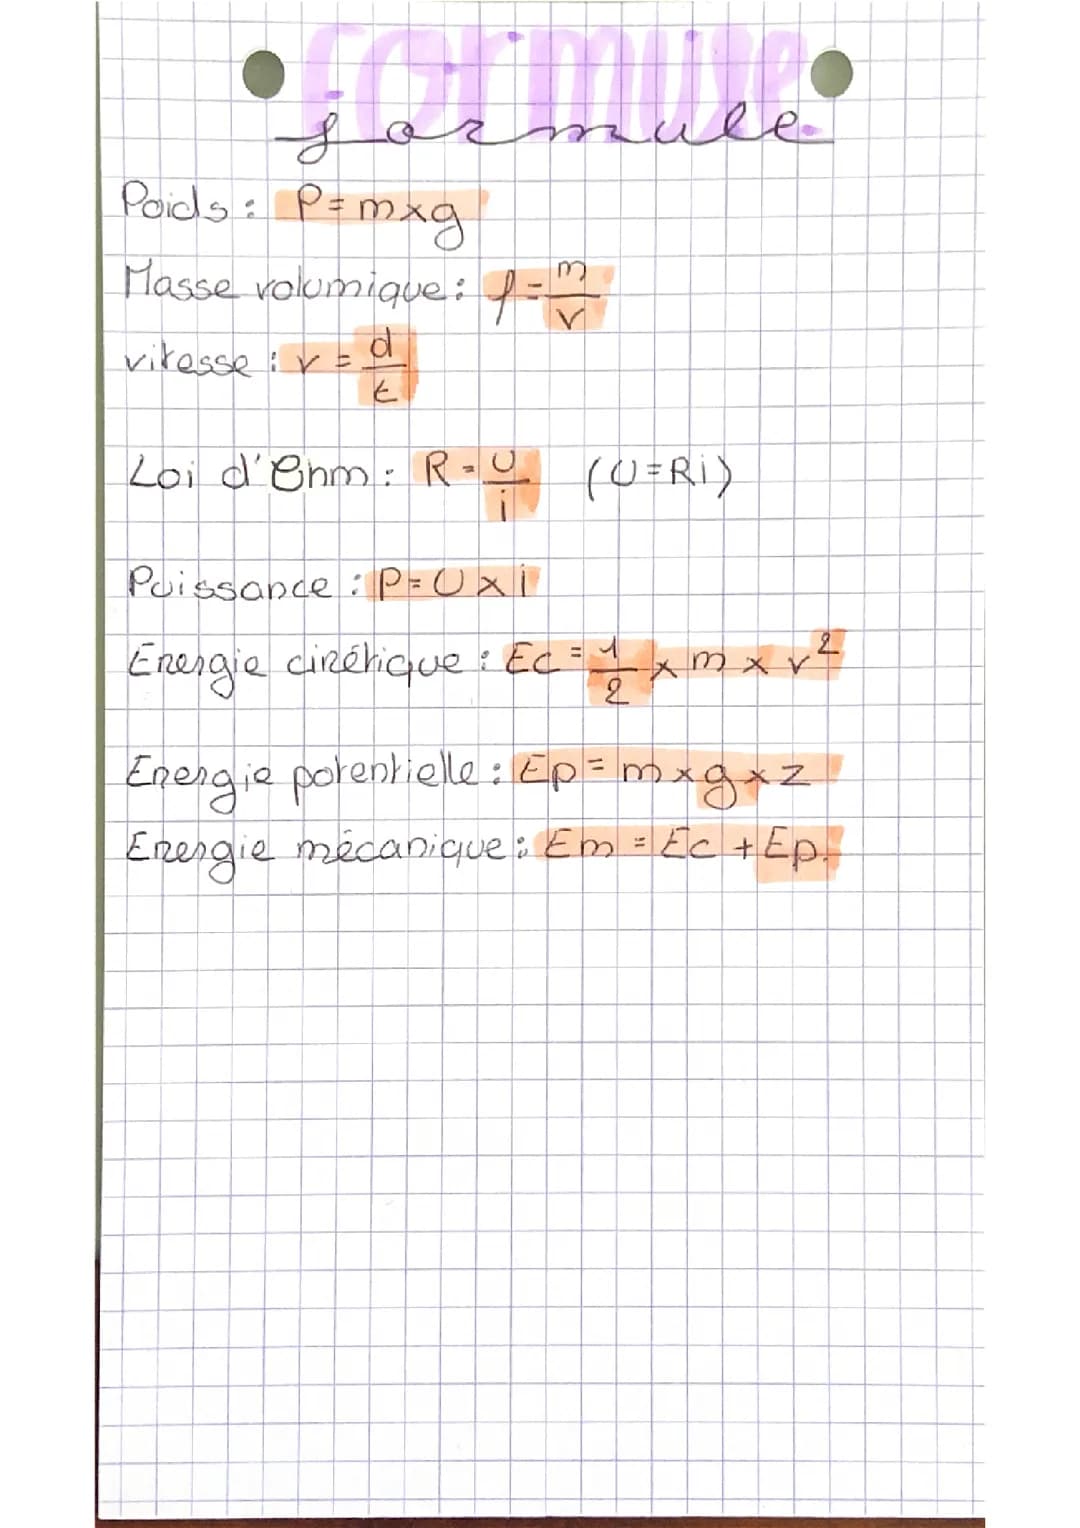 formule
formule
Poids : P = m x g
Masse volumique : ρ = m/v
vitesse : v = d/t
Loi d'Ohm : R = U/i (U = Ri)
Puissance : P = U x i
Energie cinétique : Ec = 1/2 x m x v²
Energie potentielle : Ep = m x g x z
Energie mécanique : Em = Ec + Ep.